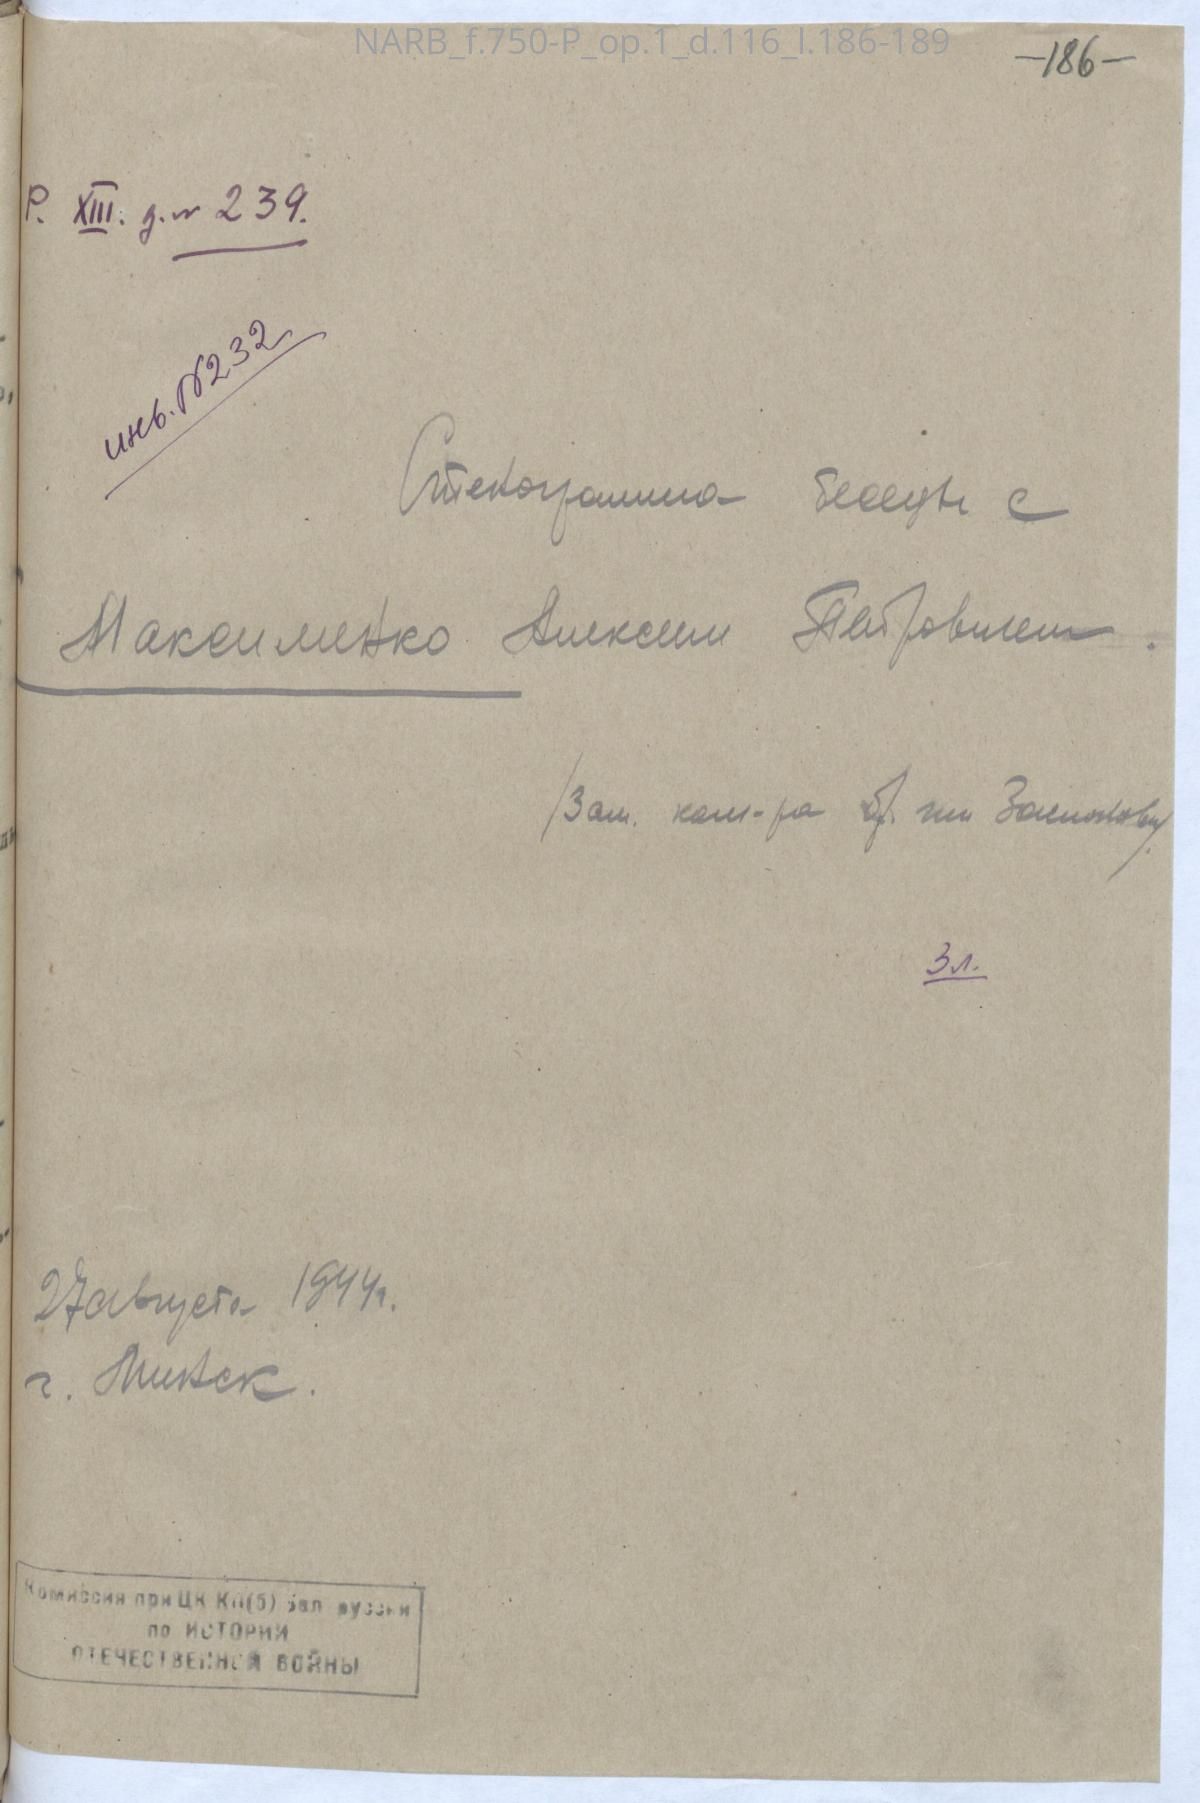 NARB_f.750-P_op.1_d.116_l.186-189
—186—
Р. XIII. д. № 239.
инв. №232
Стенограмма беседы с
Максименко Алексеем Петровичем.
/Зам. ком-ра бр. им
3л.
27 августа 1944г.
г. Минск.
Комиссия при ЦК КП(б) Белоруссии
по ИСТОРИИ
ОТЕЧЕСТВЕННОЙ ВОЙНЫ